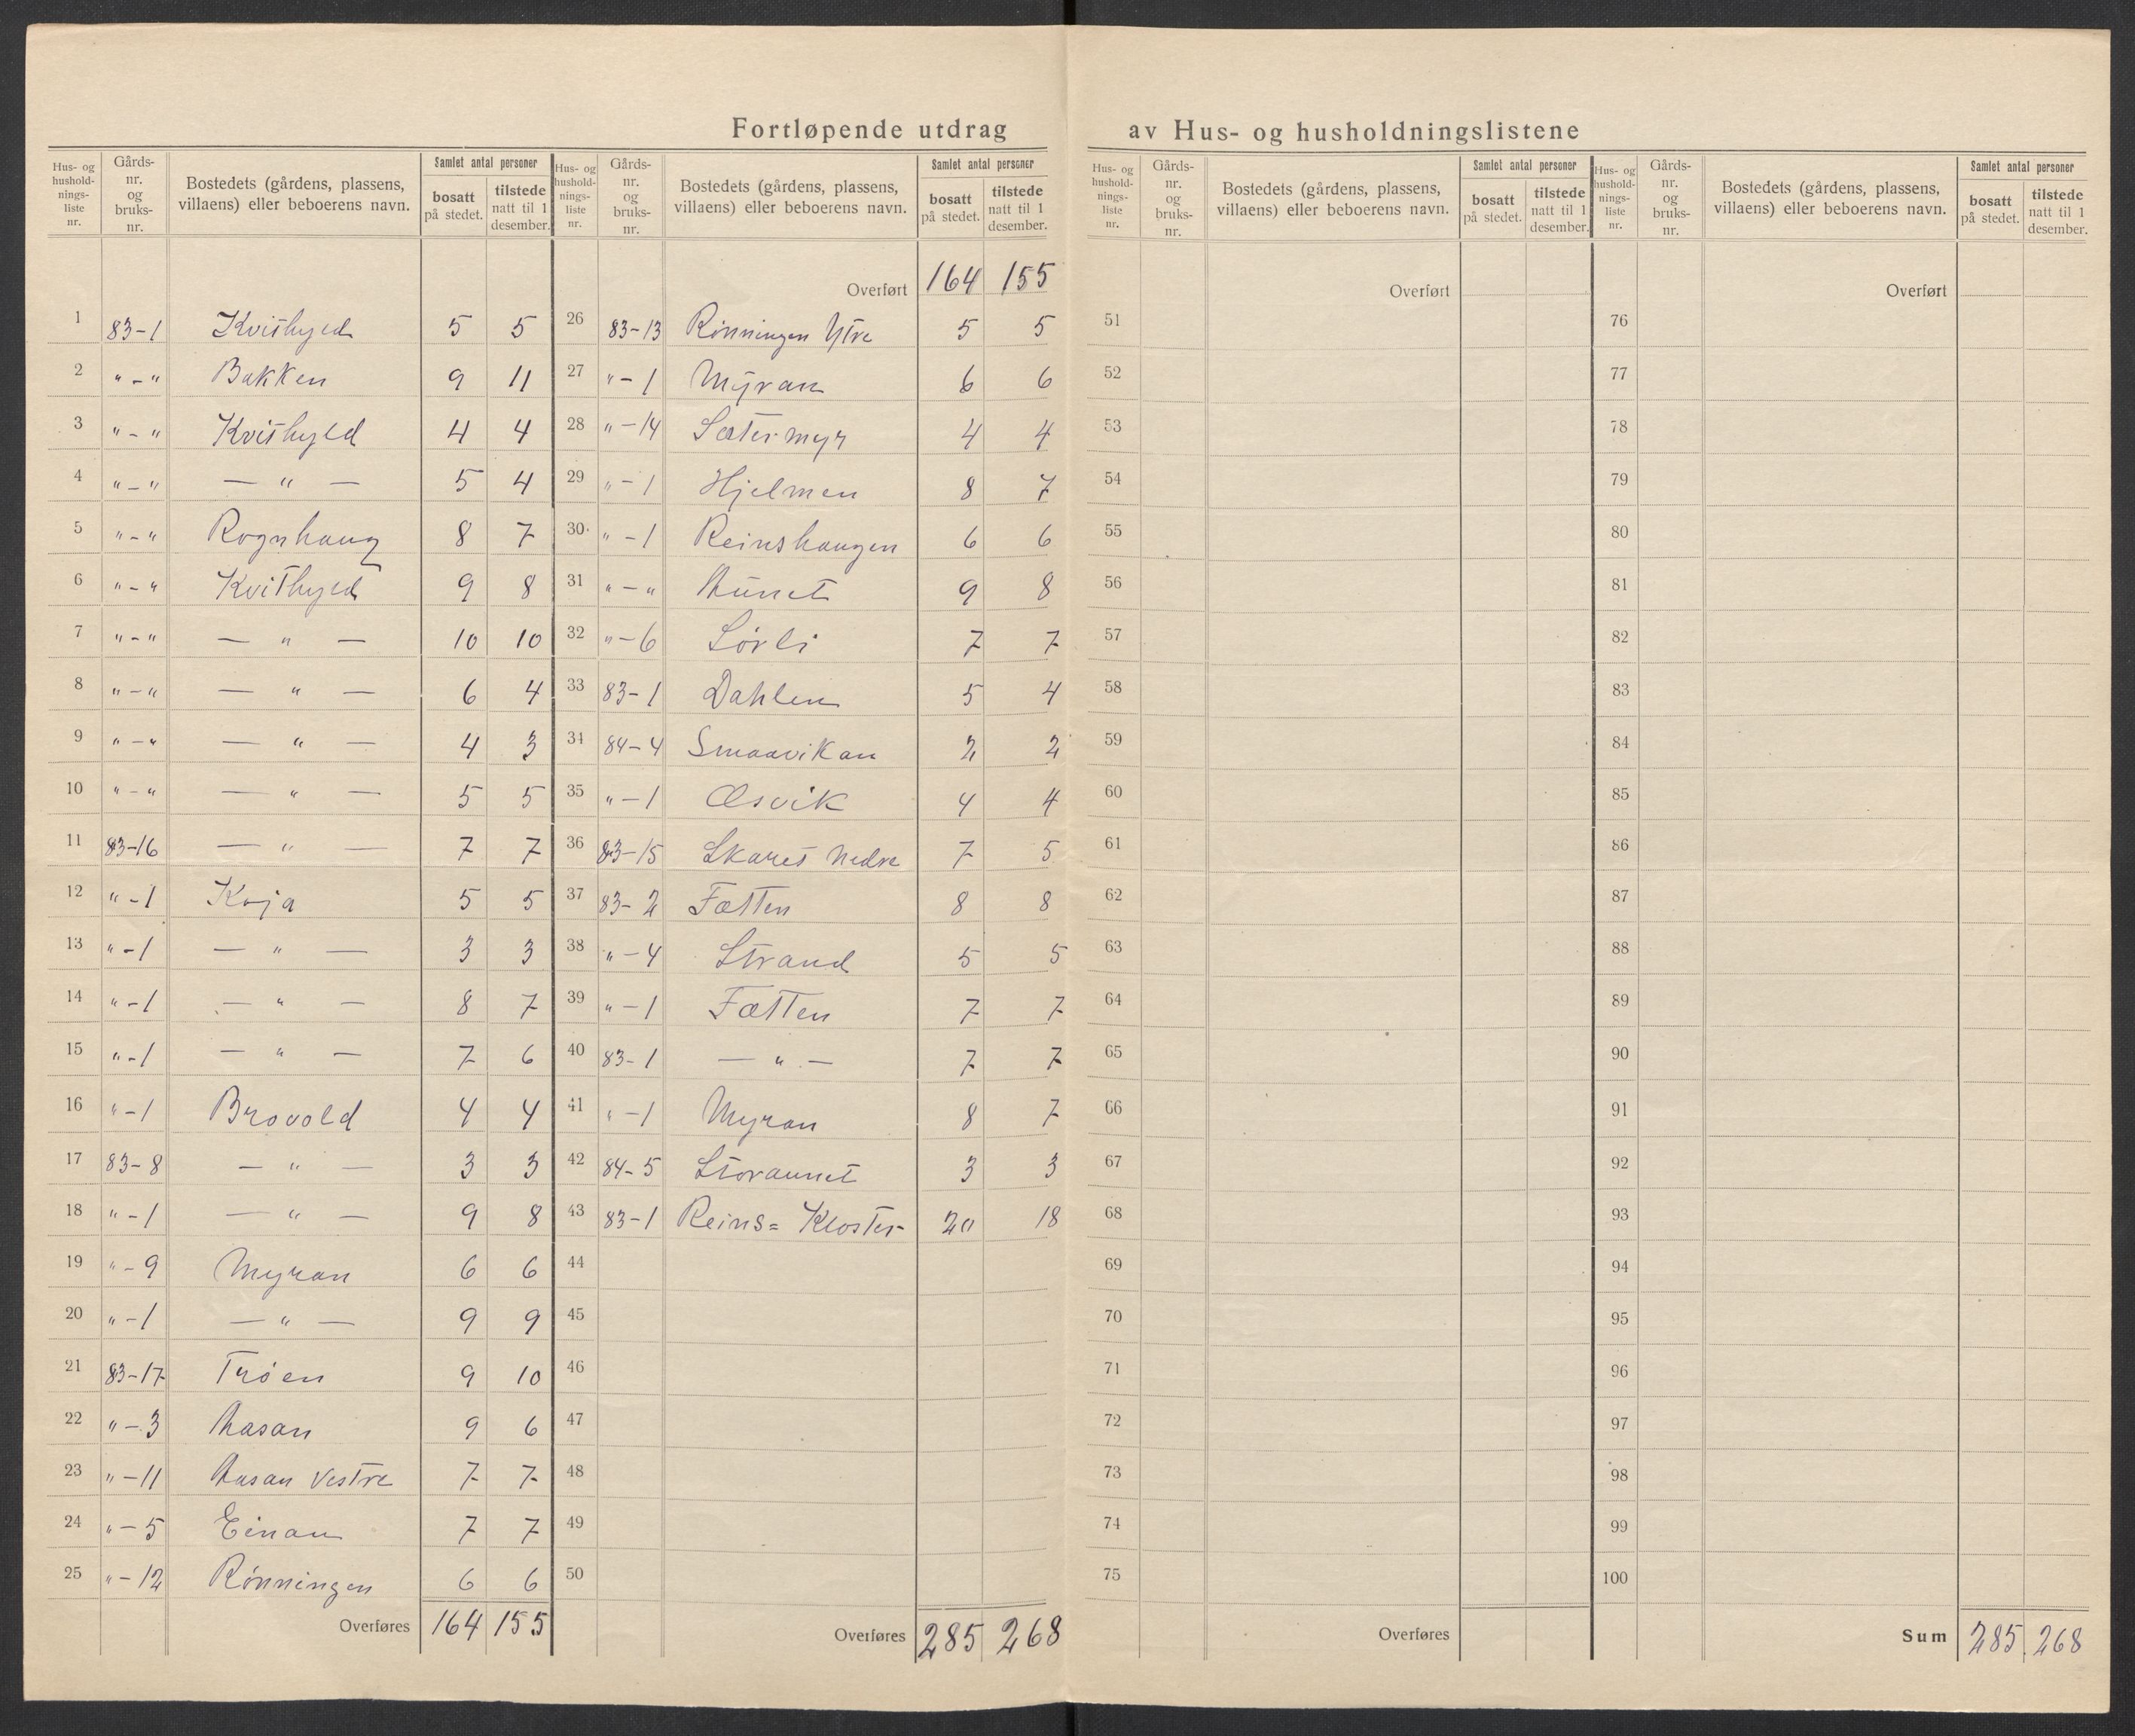 Fortløpende utdrag av Hus- og husholdningslistene
Hus- og husholdnings-liste nr. | Gårds-nr. og bruks-nr. | Bostedets (gårdens, plassens, villaens) eller beboerens navn. | Samlet antal personer | bosatt på stedet. | tilstede natt til 1 desember.
1 83-1 Kvithyld 5 5
2 " - " Bakken 9 11
3 " - " Kvithyld 4 4
4 " - " — " — 5 4
5 " - " Rognhaug 8 7
6 " - " Kvithyld 9 8
7 " - " — " — 10 10
8 " - " — " — 6 4
9 " - " — " — 4 3
10 " - " — " — 5 5
11 83-16 — " — 7 7
12 " - 1 Koja 5 5
13 " - 1 — " — 3 3
14 " - 1 — " — 8 7
15 " - 1 — " — 7 6
16 " - 1 Brovold 4 4
17 83-8 — " — 3 3
18 " - 1 — " — 9 8
19 " - 9 Myran 6 6
20 " - 1 — " — 9 9
21 83-17 Trøen 9 10
22 " - 3 Aasan 9 6
23 " - 11 Aasan Vestre 7 7
24 " - 5 Einan 7 7
25 " - 12 Rønningen 6 6
Overføres 164 155
Hus- og husholdnings-liste nr. | Gårds-nr. og bruks-nr. | Bostedets (gårdens, plassens, villaens) eller beboerens navn. | Samlet antal personer | bosatt på stedet. | tilstede natt til 1 desember.
Overført 164 155
26 83-13 Rønningen Ytre 5 5
27 " - 1 Myran 6 6
28 " - 14 Sætermyr 4 4
29 " - 1 Hjelmen 8 7
30 " - 1 Reinshaugen 6 6
31 " - " Aunet 9 8
32 " - 6 Sørli 7 7
33 83-1 Dahlen 5 4
34 84-4 Smaavikan 2 2
35 " - 1 Æsvik 4 4
36 83-15 Skaret Nedre 7 5
37 83-2 Fætten 8 8
38 " - 4 Strand 5 5
39 " - 1 Fætten 7 7
40 83-1 — " — 7 7
41 " - 1 Myran 8 7
42 84-5 Storaunet 3 3
43 83-1 Reins= Kloster 20 18
44
45
46
47
48
49
50
Overføres 285 268
Hus- og husholdnings-liste nr. | Gårds-nr. og bruks-nr. | Bostedets (gårdens, plassens, villaens) eller beboerens navn. | Samlet antal personer | bosatt på stedet. | tilstede natt til 1 desember.
Overført
51
52
53
54
55
56
57
58
59
60
61
62
63
64
65
66
67
68
69
70
71
72
73
74
75
Overføres
Hus- og husholdnings-liste nr. | Gårds-nr. og bruks-nr. | Bostedets (gårdens, plassens, villaens) eller beboerens navn. | Samlet antal personer | bosatt på stedet. | tilstede natt til 1 desember.
Overført
76
77
78
79
80
81
82
83
84
85
86
87
88
89
90
91
92
93
94
95
96
97
98
99
100
Sum 285 268